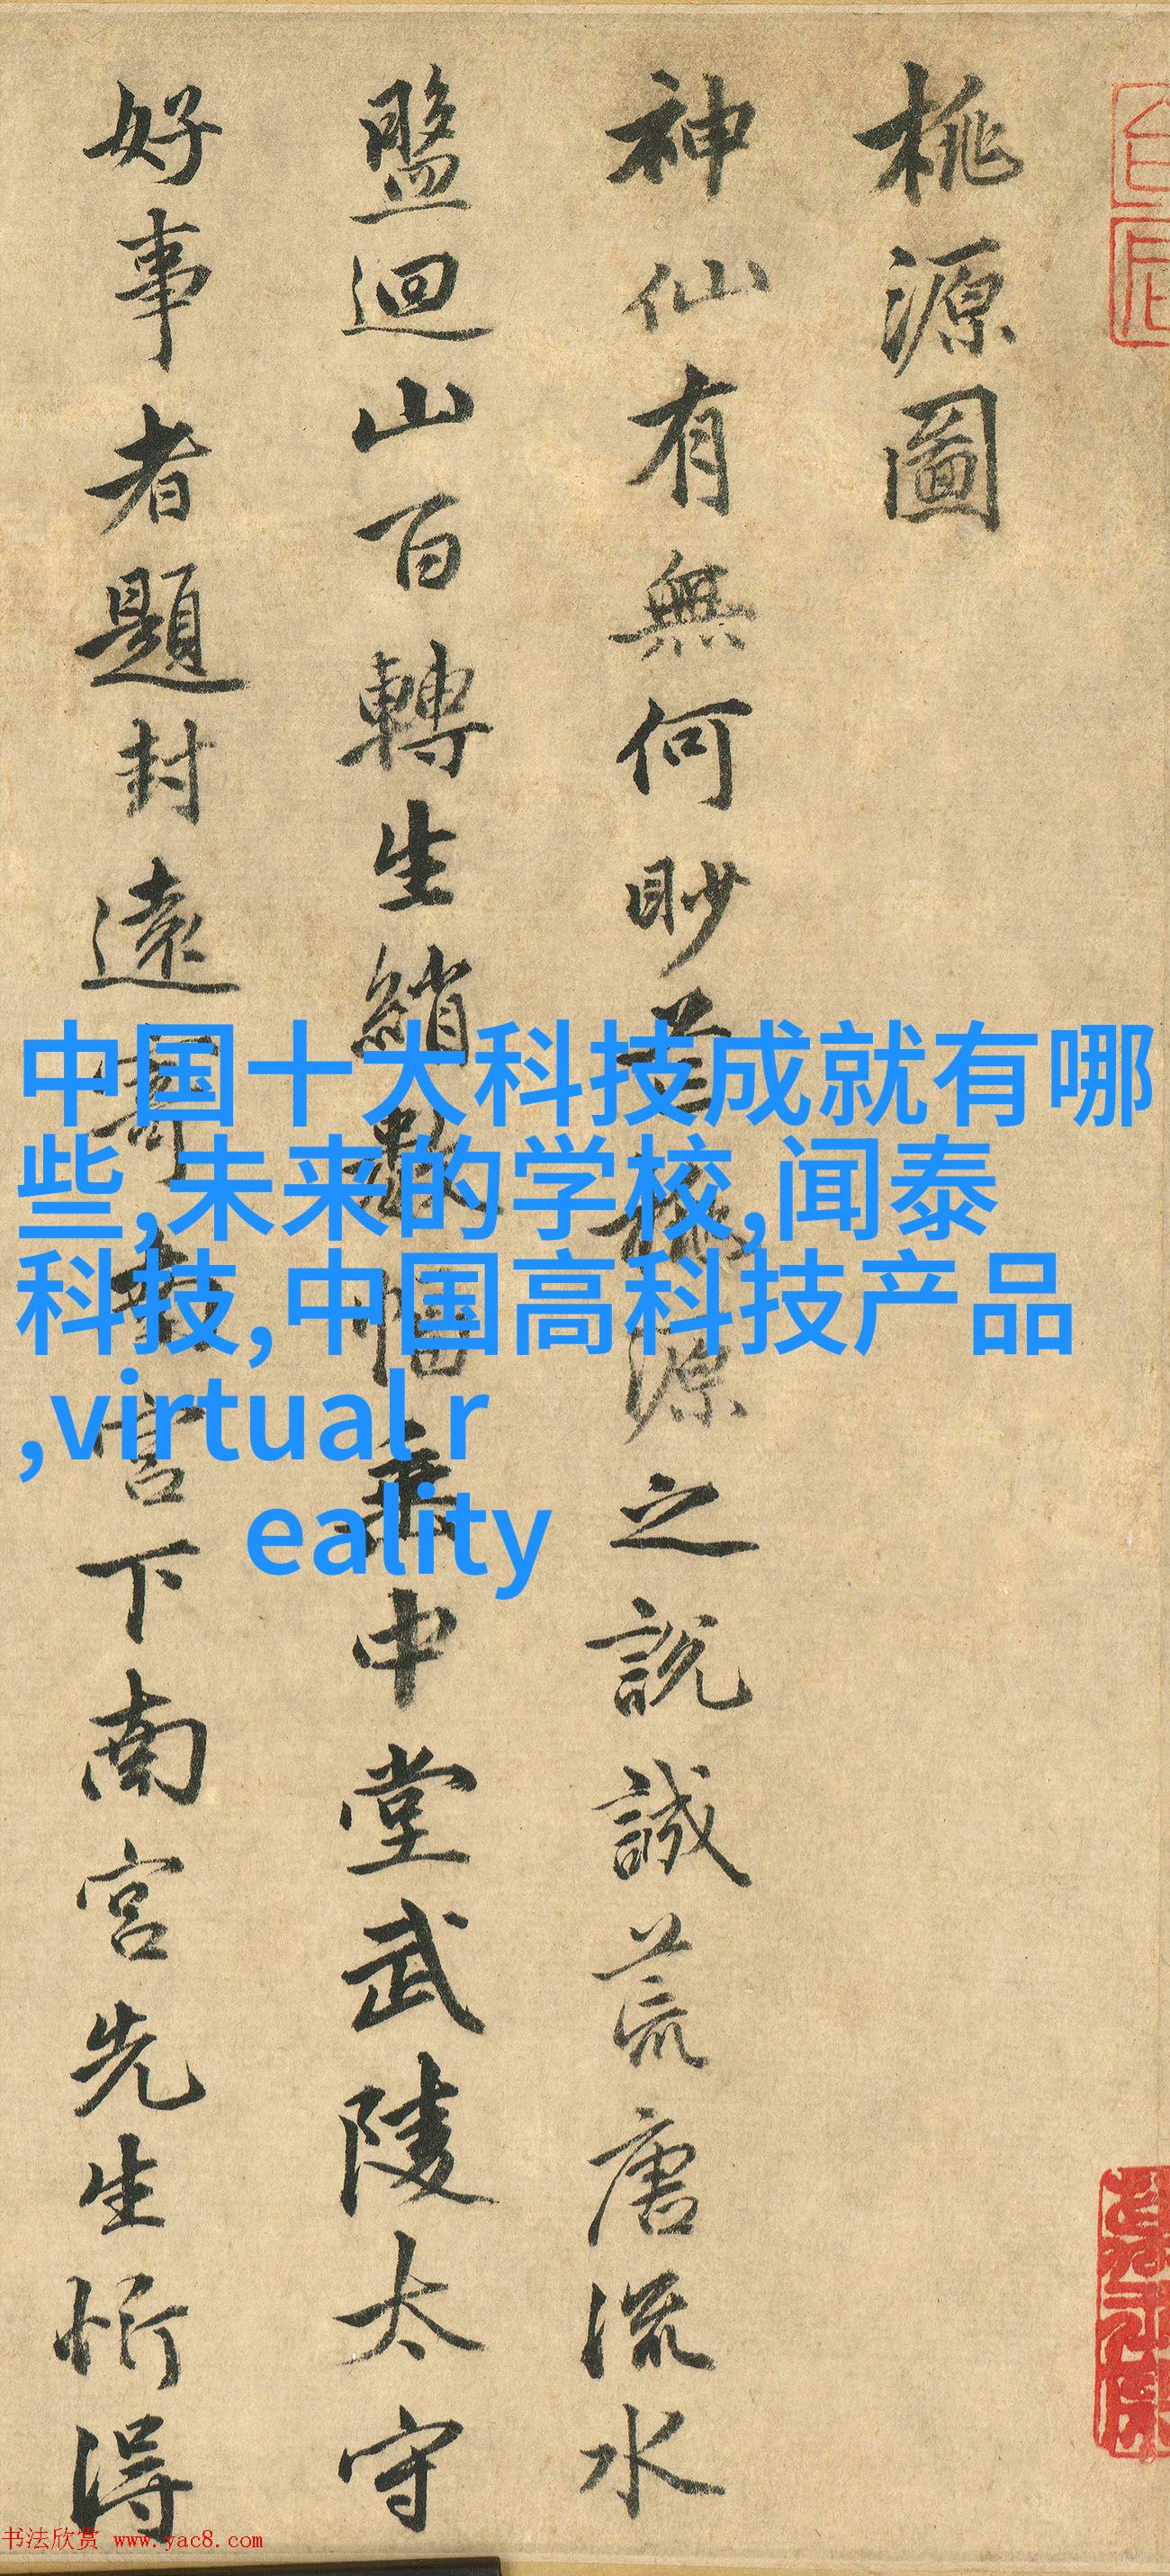 桃源圖
神仙有無何眇芒桃源之說誠荒唐流水
盤迴山百轉生綃數幅垂中堂武陵太守
好事者題封遠寄南宮下南宮先生忻得
中国十大科技成就有哪
些,未来的学校,闻泰
科技,中国高科技产品
,virtual r
eality
书法欣赏 www.yac8.com